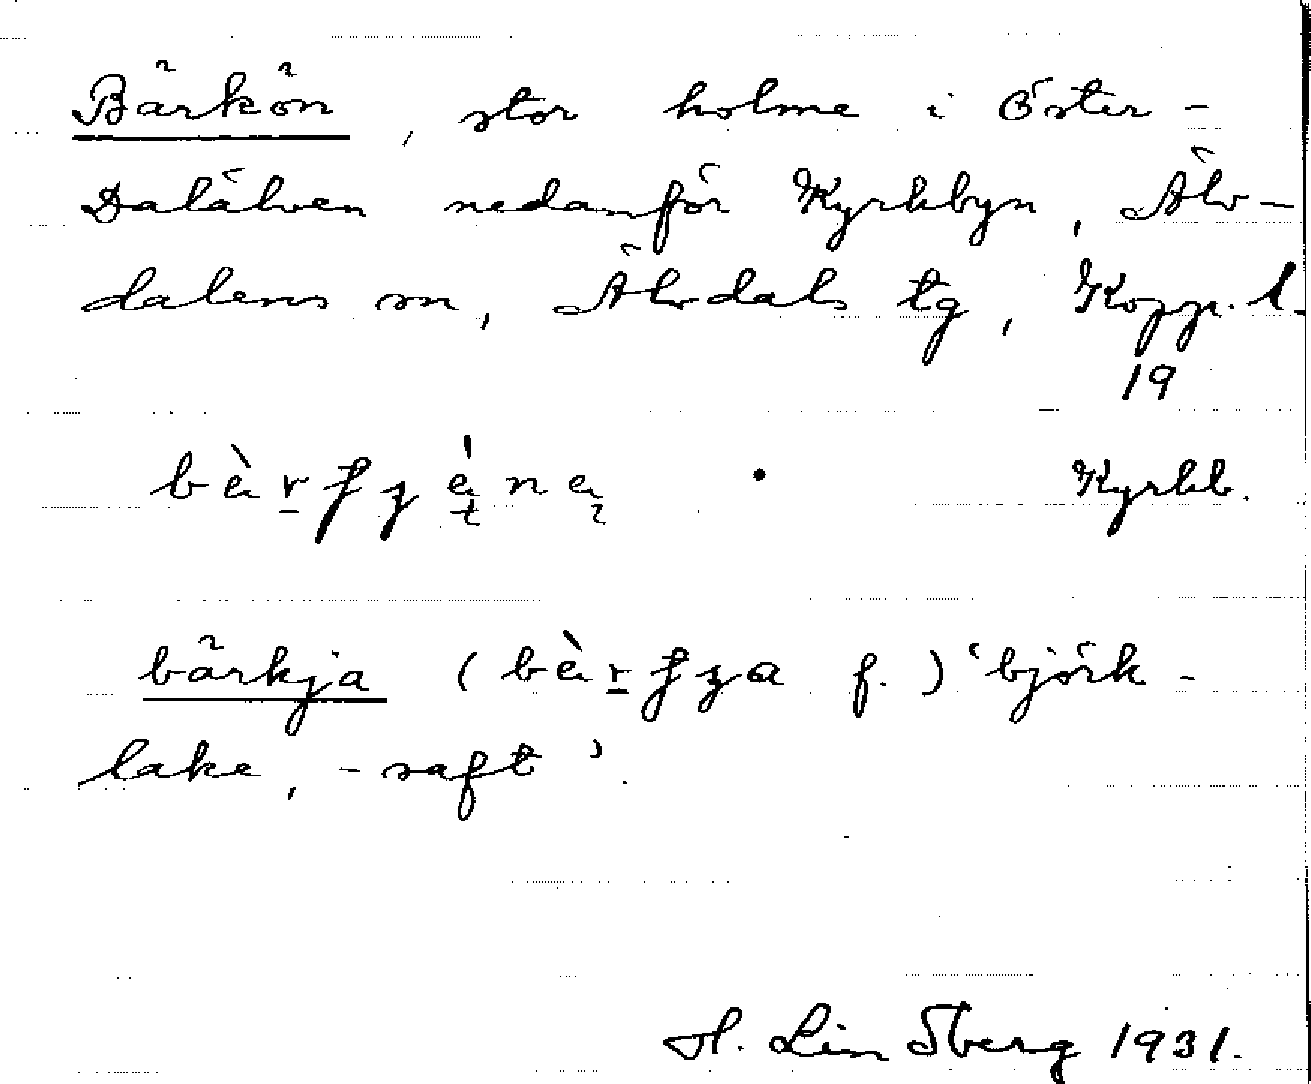 Bärkön, stor holme i Öster-
Dalälven nedanför Kyrkbyn, Älv-
dalens sn, Älvdals tg, Kopp. l.
19
Kyrkb.
bärkja ( f.) 'björk-
lake, -saft'.
H. Lindberg 1931.